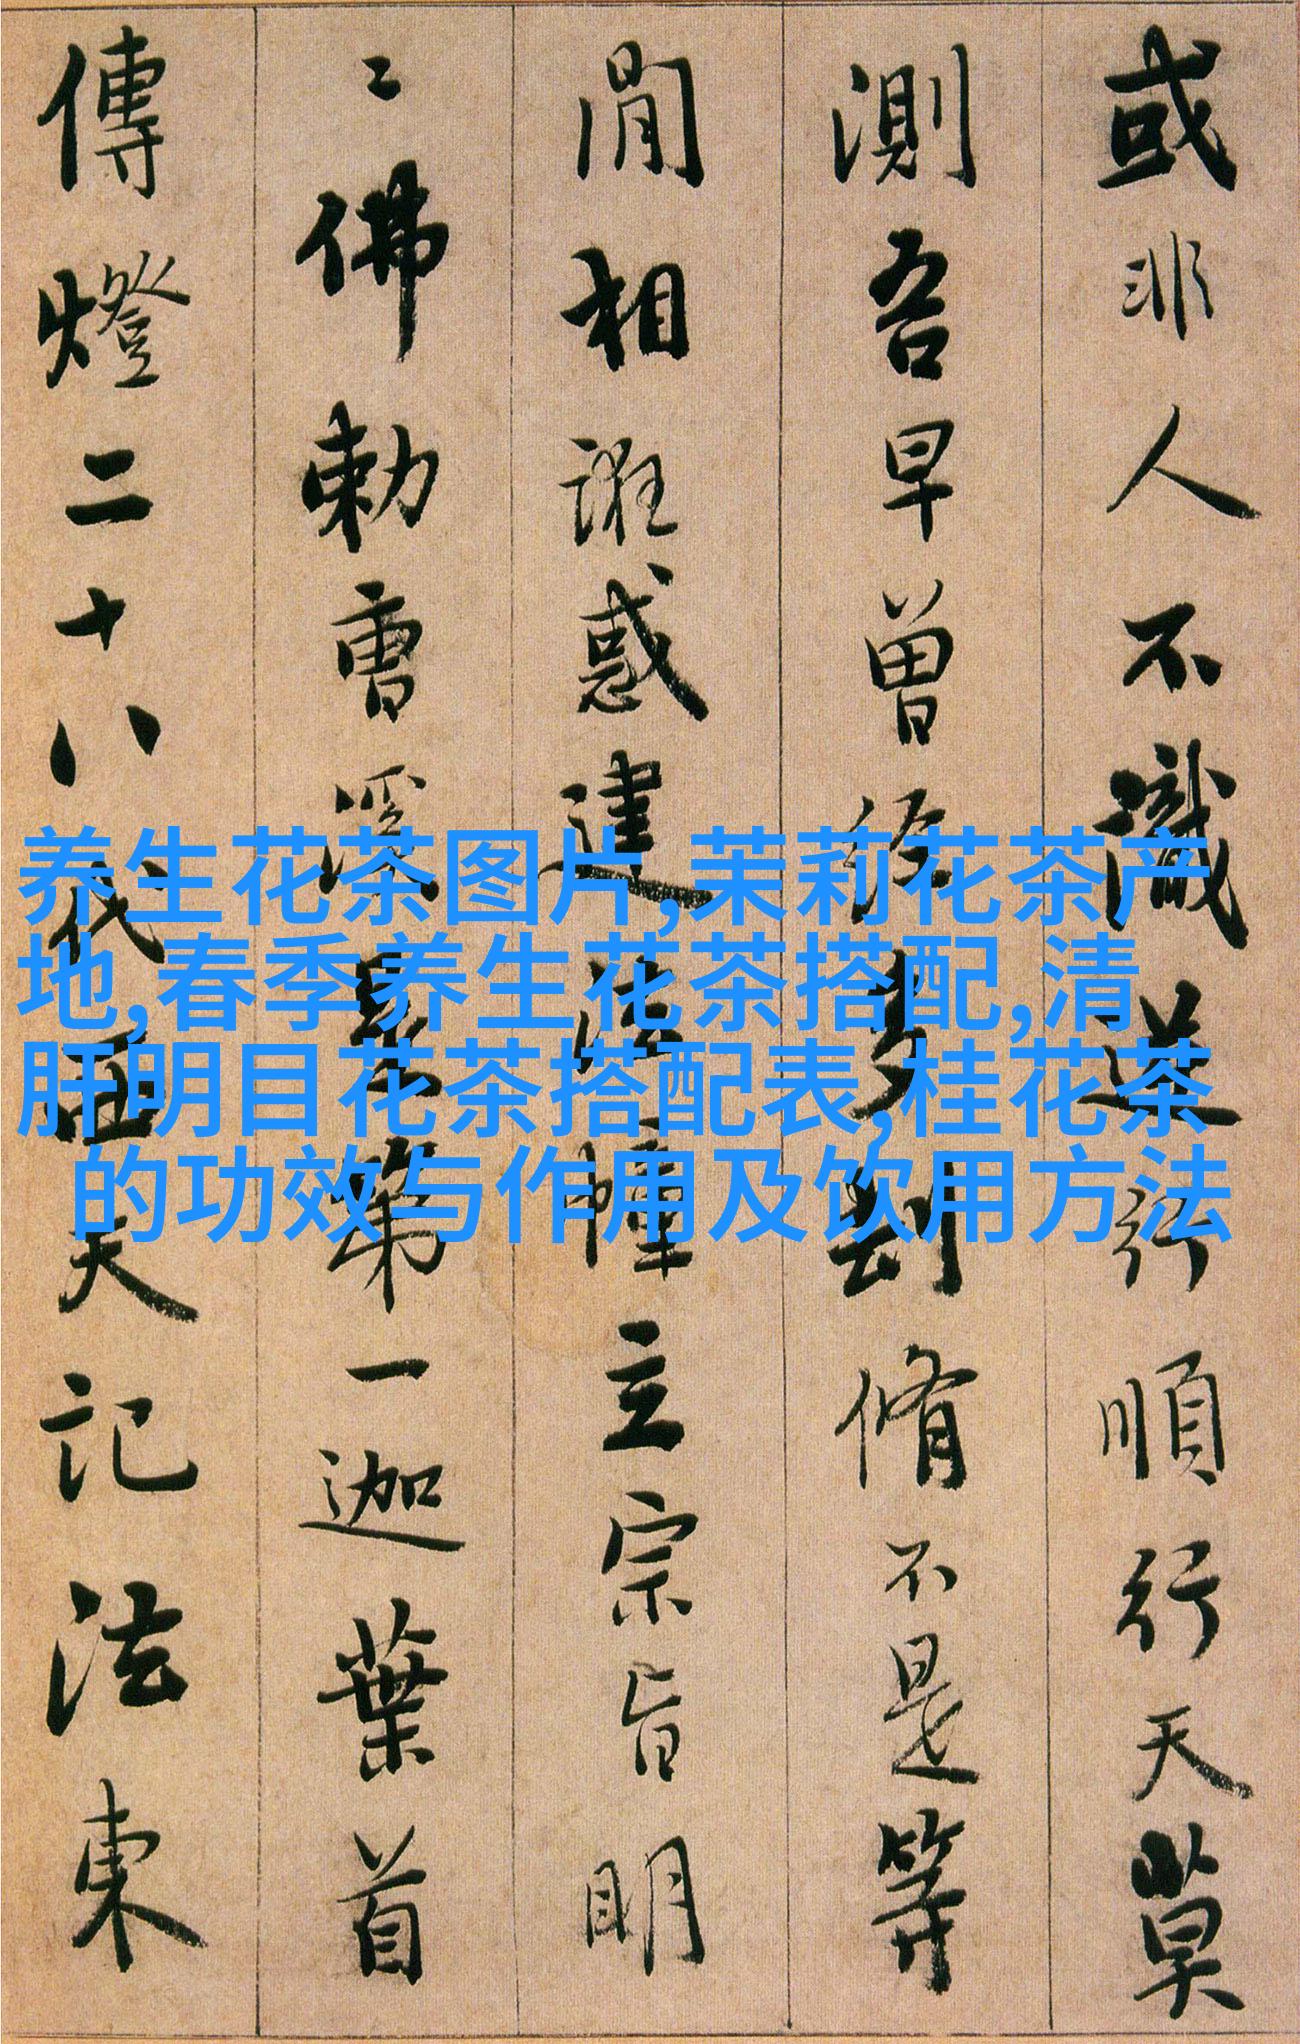 或非人不識逆行順行天莫
測吾早曾經多劫脩不是等
閒相誑惑建法幢立宗旨明
〻佛勅曹溪是第一迦葉首
傳燈二十八代西天記法東
养生花茶图片,茉莉花茶产
地,春季养生花茶搭配,清
肝明目花茶搭配表,桂花茶
的功效与作用及饮用方法